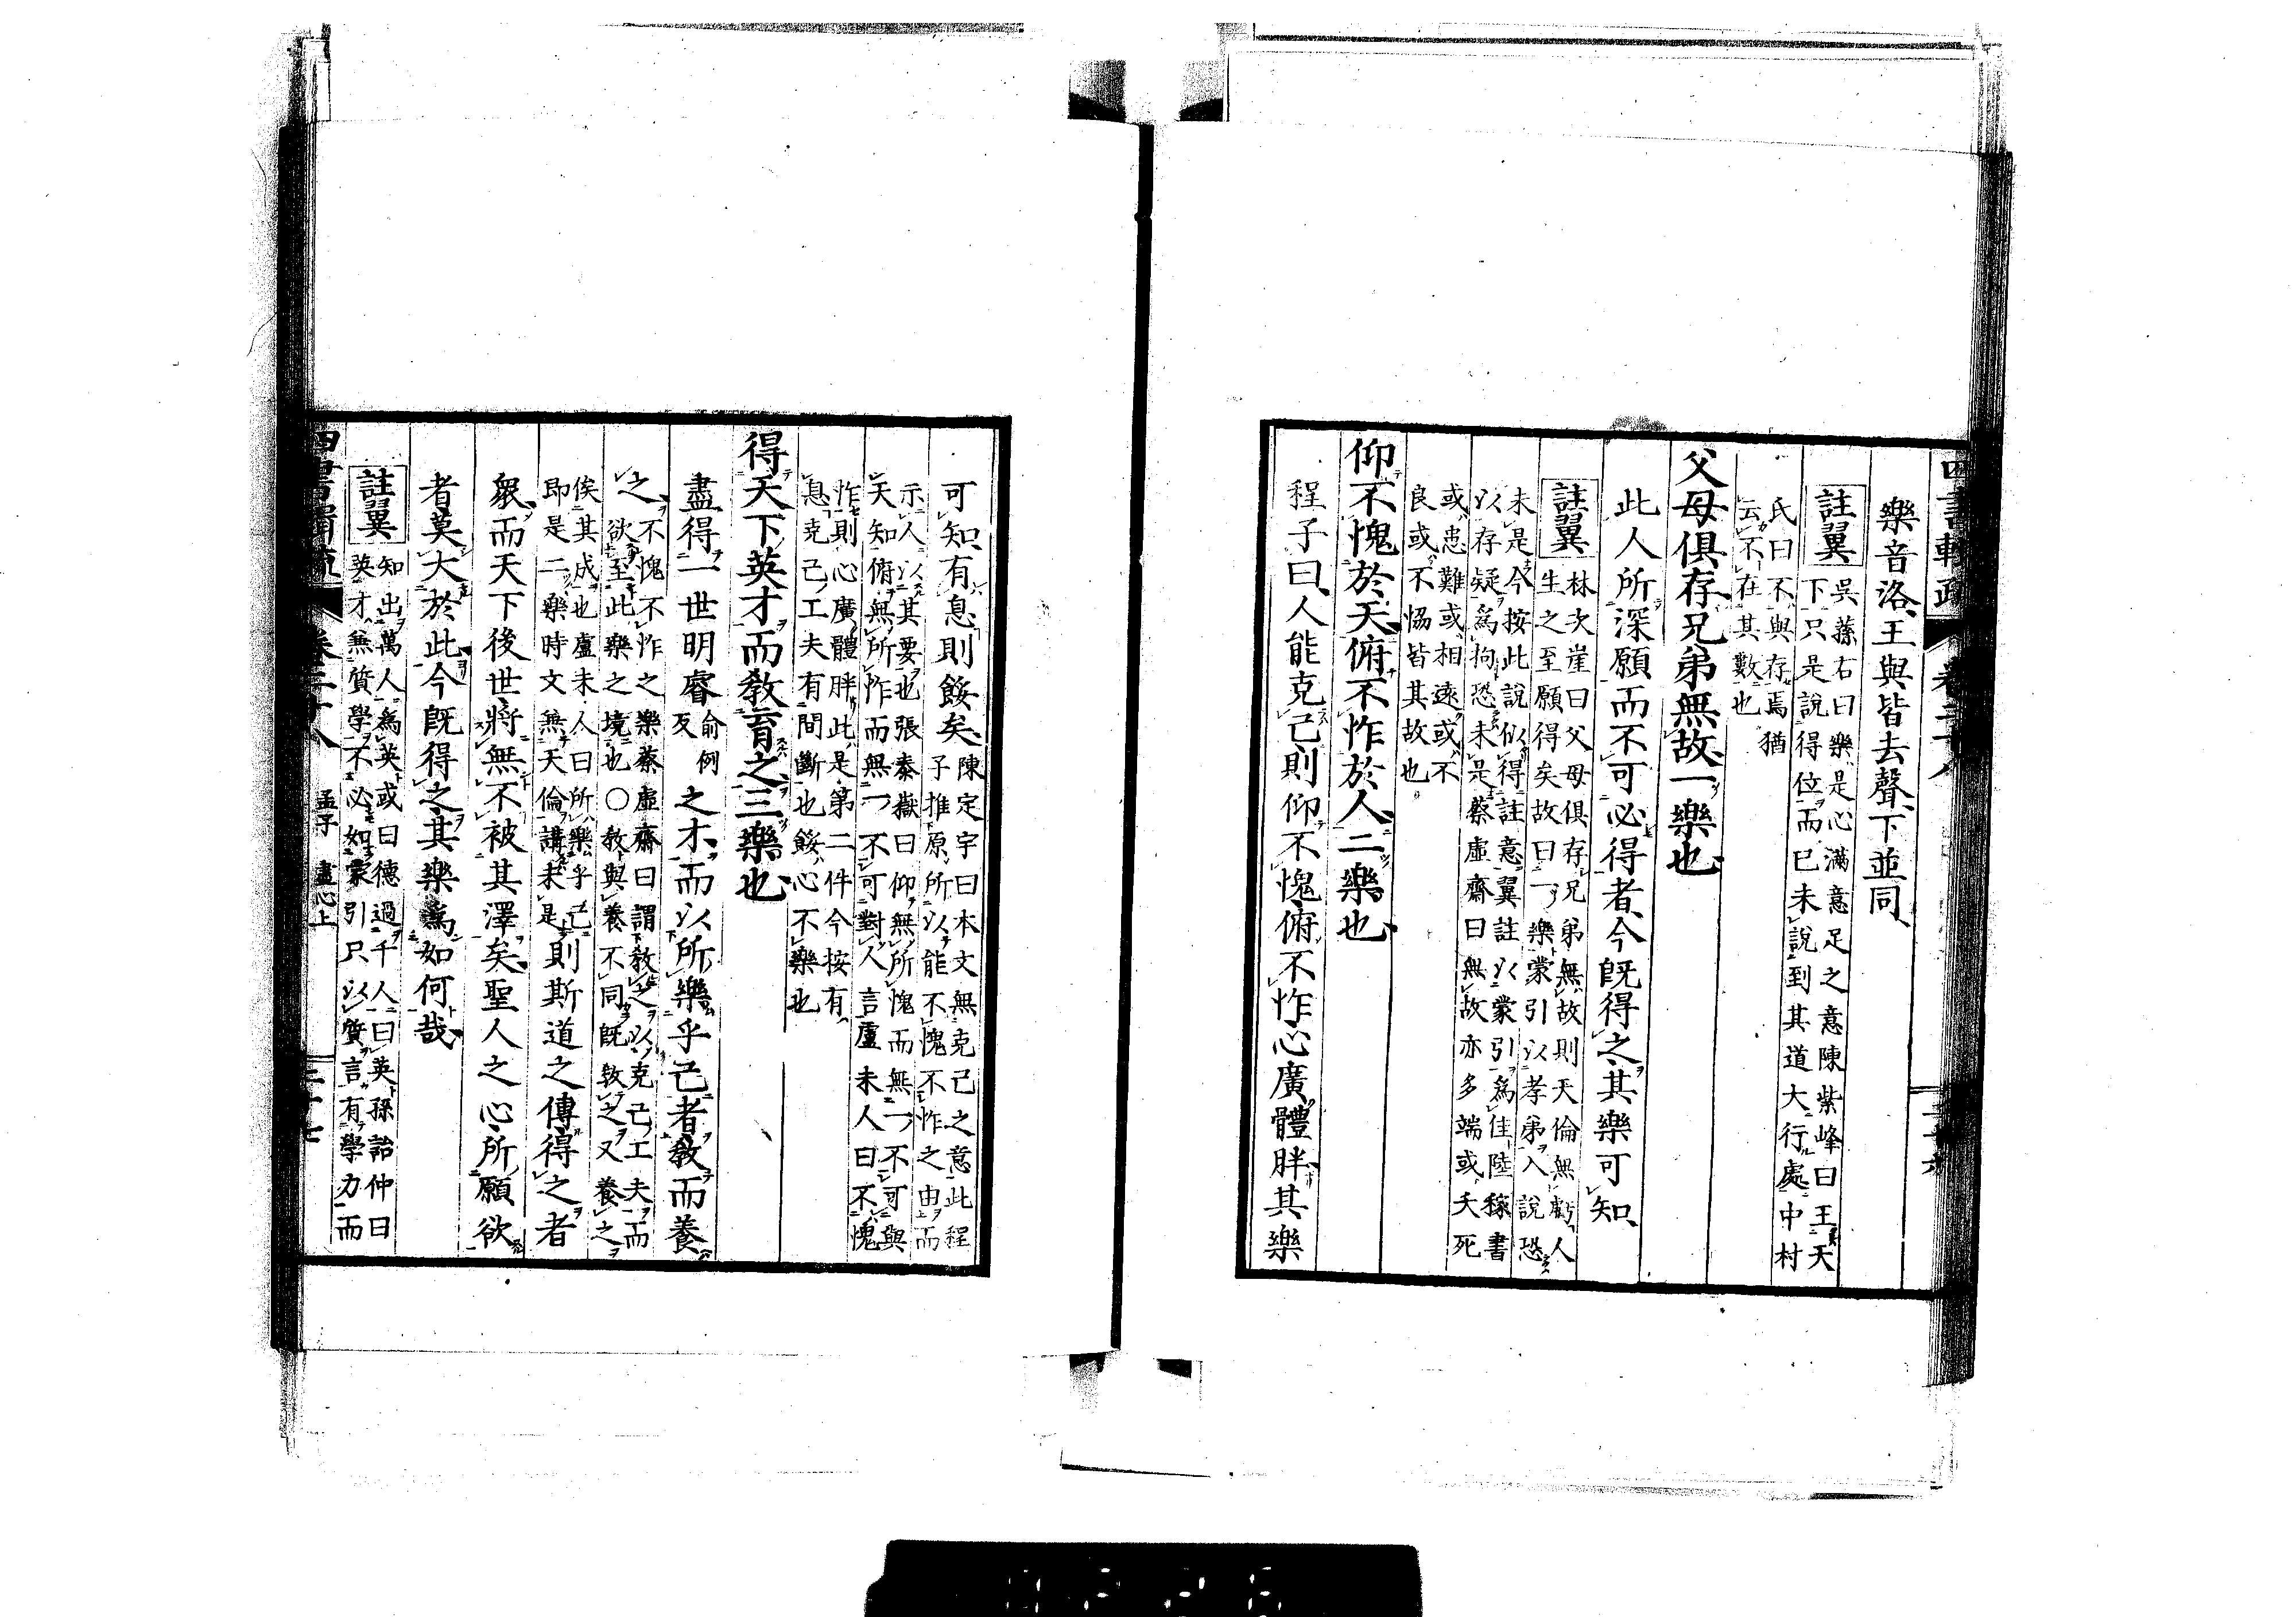 四書輯疏 卷二十八 二十六
樂音洛、王與皆去聲、下並同、
註翼
吳蓀右曰樂是心滿意足之意陳紫峰曰王天
下只是說得位而已未說到其道大行處中村
氏曰不與存焉猶
云不在其數也
父母俱存兄弟無故一樂也
此人所深願而不可必得者、今旣得之其樂可知、
註翼
林次崖曰父母俱存兄弟無故則天倫無虧人
生之至願得矣故曰一樂蒙引以孝弟入說恐
未是今按此說似得註意翼註以蒙引爲佳陸稼書
以存疑爲拘恐未是蔡虛齋曰無故亦多端或夭死
或患難或相遠或不
良或不恊皆其故也
仰不愧於天俯不怍於人二樂也
程子曰、人能克己則仰不愧俯不怍心廣體胖其樂
可知、有息則餒矣、
陳定宇曰本文無克己之意此程
子推原所以能不愧不怍之由而
示人以其要也張泰嶽曰仰無所愧而無一不可與
天知俯無所怍而無一不可對人言盧未人曰不愧
怍則心廣體胖此是第二件今按有
息克己工夫有間斷也餒心不樂也
得天下英才而敎育之三樂也
盡得一世明睿
俞例
反
之才、而以所樂乎己者敎而養
之
不愧不怍之樂蔡虛齋曰謂敎之以克己工夫而
欲至此樂之境也○敎與養不同旣敎之又養之
俟其成也盧未人曰所樂乎己
即是二樂時文無天倫講未是
則斯道之傳得之者
衆而天下後世將無不被其澤矣聖人之心所願欲
者莫大於此今旣得之其樂爲如何哉
註翼
知出萬人爲英或曰德過千人曰英孫詒仲曰
英才兼質學不必如蒙引只以質言有學力而
四書輯疏 卷二十八 孟子 盡心上 二十七